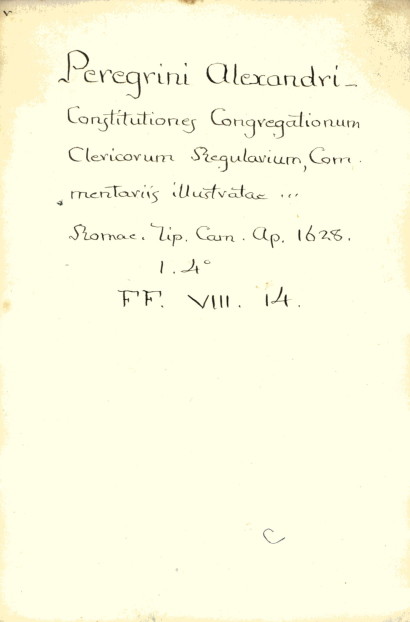 Peregrini Alexandri-
Constitutiones Congregationum
Clericorum Regularium, Com.
mentariis illustratae ...
Romae. Tip. Cam. Ap. 1628.
1. 4°
FF. VIII. 14.
C